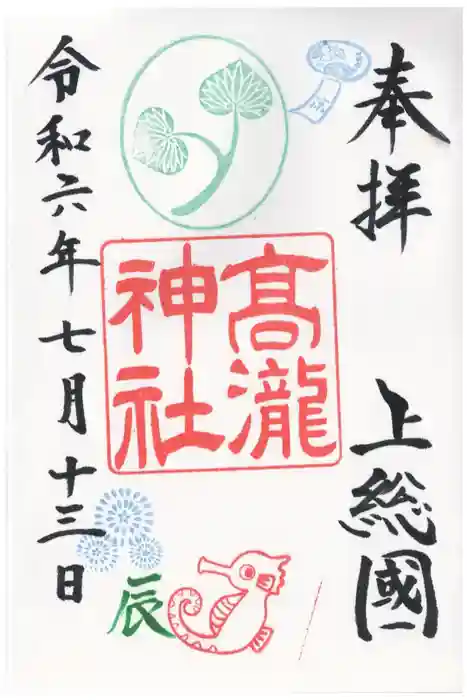 奉拝
上総國
髙瀧
神社
令和六年七月十三日
辰